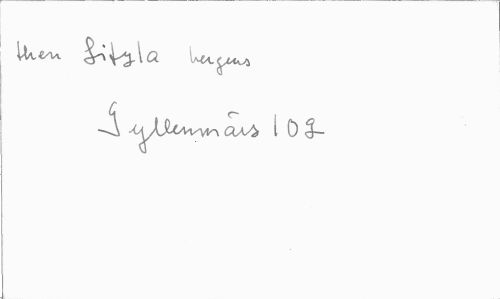 then Sityla bergens
Gyllenmärs 109